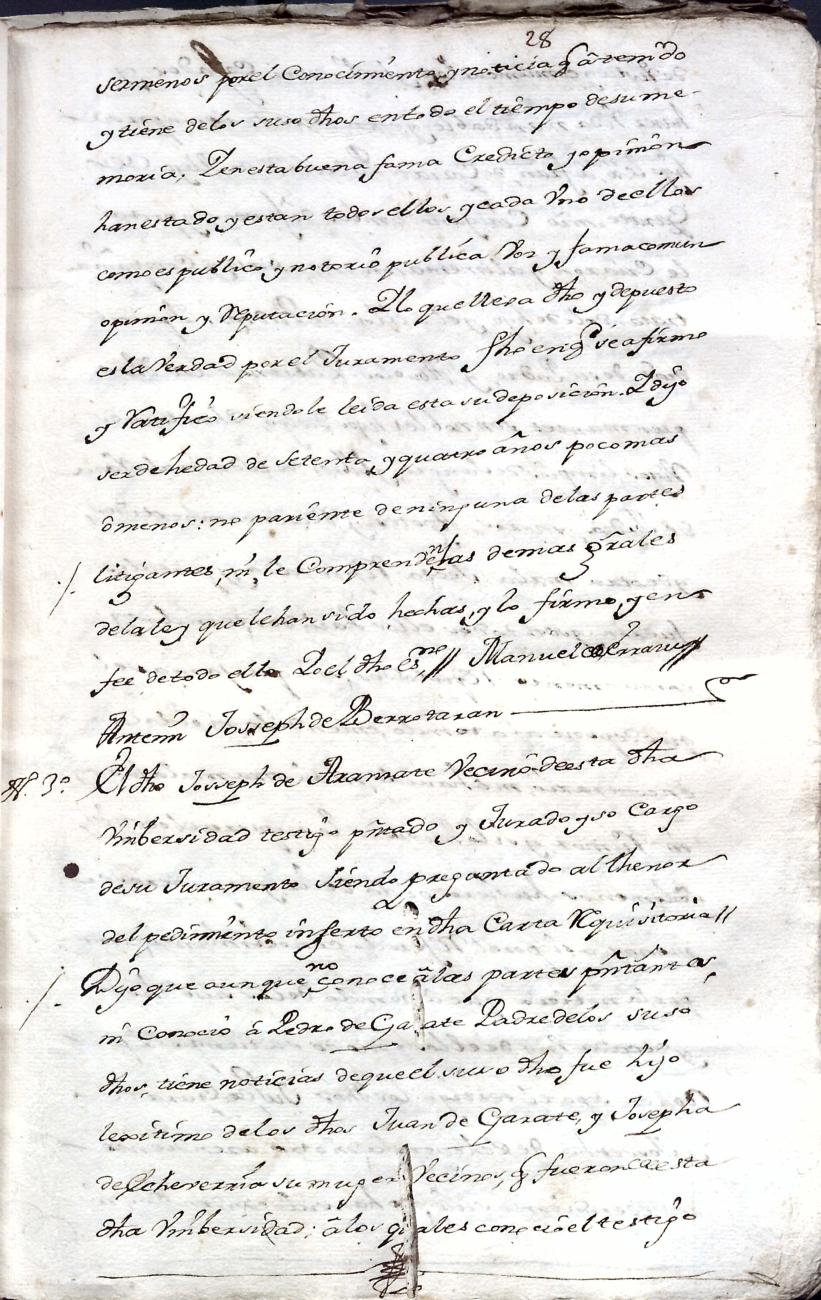 28
sermenos por el Conocimiento y noticia q̃ a tenido
y tiene delos suso dhos en todo el tiempo desu me-
moria; Y en esta buena fama Credicto y opinion
han estado y estan todos ellos y cada Vno de ellos
como es publico y notorio publica Voz y fama comun
opinion y Reputacion. Y lo que lleva dho y depuesto
es la Verdad por el Juramento fho en q̃ se afirmo
y Ratifico siendole leida esta su deposicion. Y dijo
ser de hedad de setenta y quatro años poco mas
ô menos: no pariente de ninguna de las partes
/. litigantes, ni le Comprenden las demas gẽrales
dela ley que le han sido hechas, y lo firmo, y en
fee de todo ello Yo el dho esno // Manuel de
Antemi Josseph de Berrotaran
N. 3º El dho Josseph de Aramate Vecino de esta dha
Vnibersidad testigo pñtado y Jurado y so Cargo
de su Juramento siendo preguntado al thenor
del pedimiento inserto en dha Carta Requisitoria //
/. Dijo que aunque no conoce â las partes pñtantes,
ni Conocio â Pedro de Garate Padre delos suso
dhos, tiene noticias de que el suso dho fue hijo
lexitimo de los dhos Juan de Garate, y Josepha
de Echeverria su muger Vecinos, q̃ fueron de esta
dha Vnibersidad; â los quales conocio el testigo